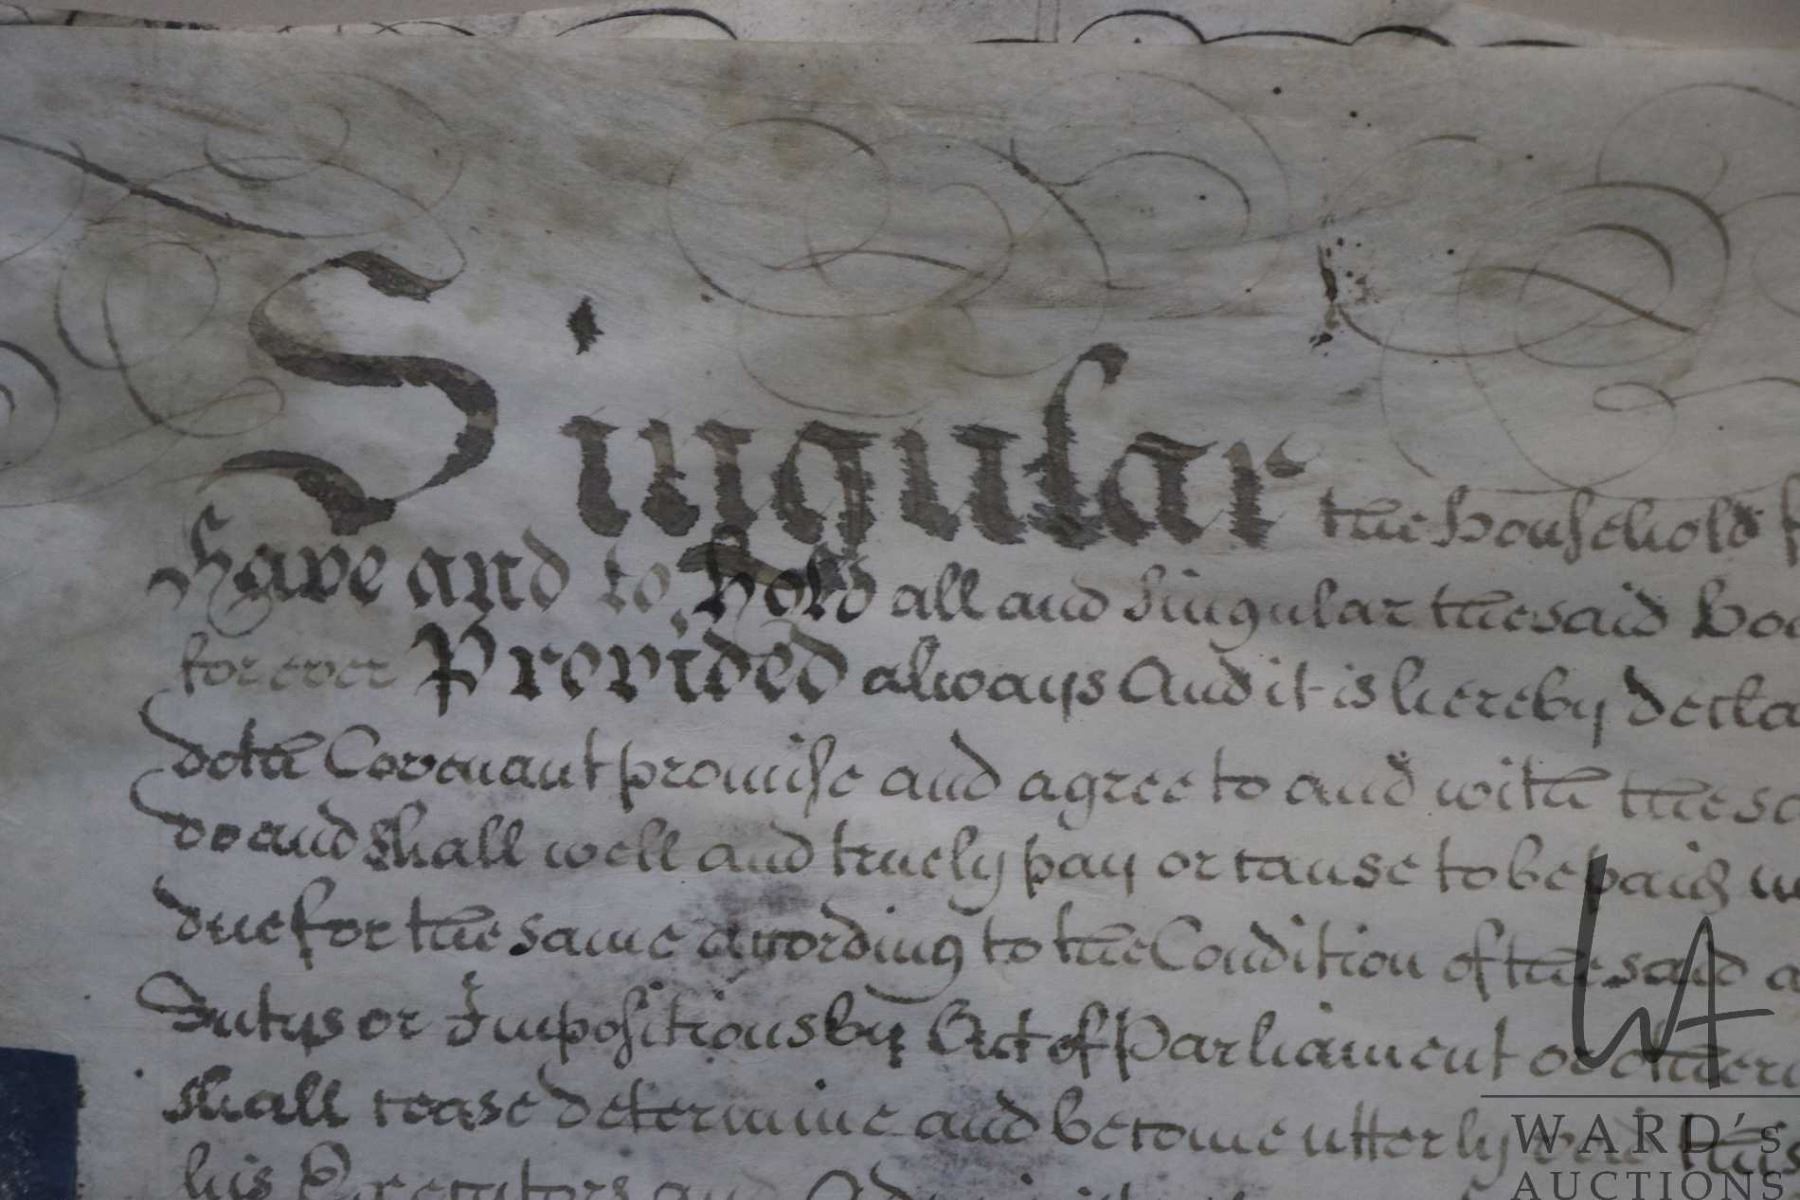 Singular the Household
Have and to Hold all and Singular the said
for ever Provided always And it is hereby
doth Covenant promise and agree to and with the
do and shall well and truely pay or cause to be paid
due for the same according to the Condition of the said
Dutys or Impositions by Act of Parliament or
shall cease determine and become utterly void
his Executors and
WARD's
AUCTIONS